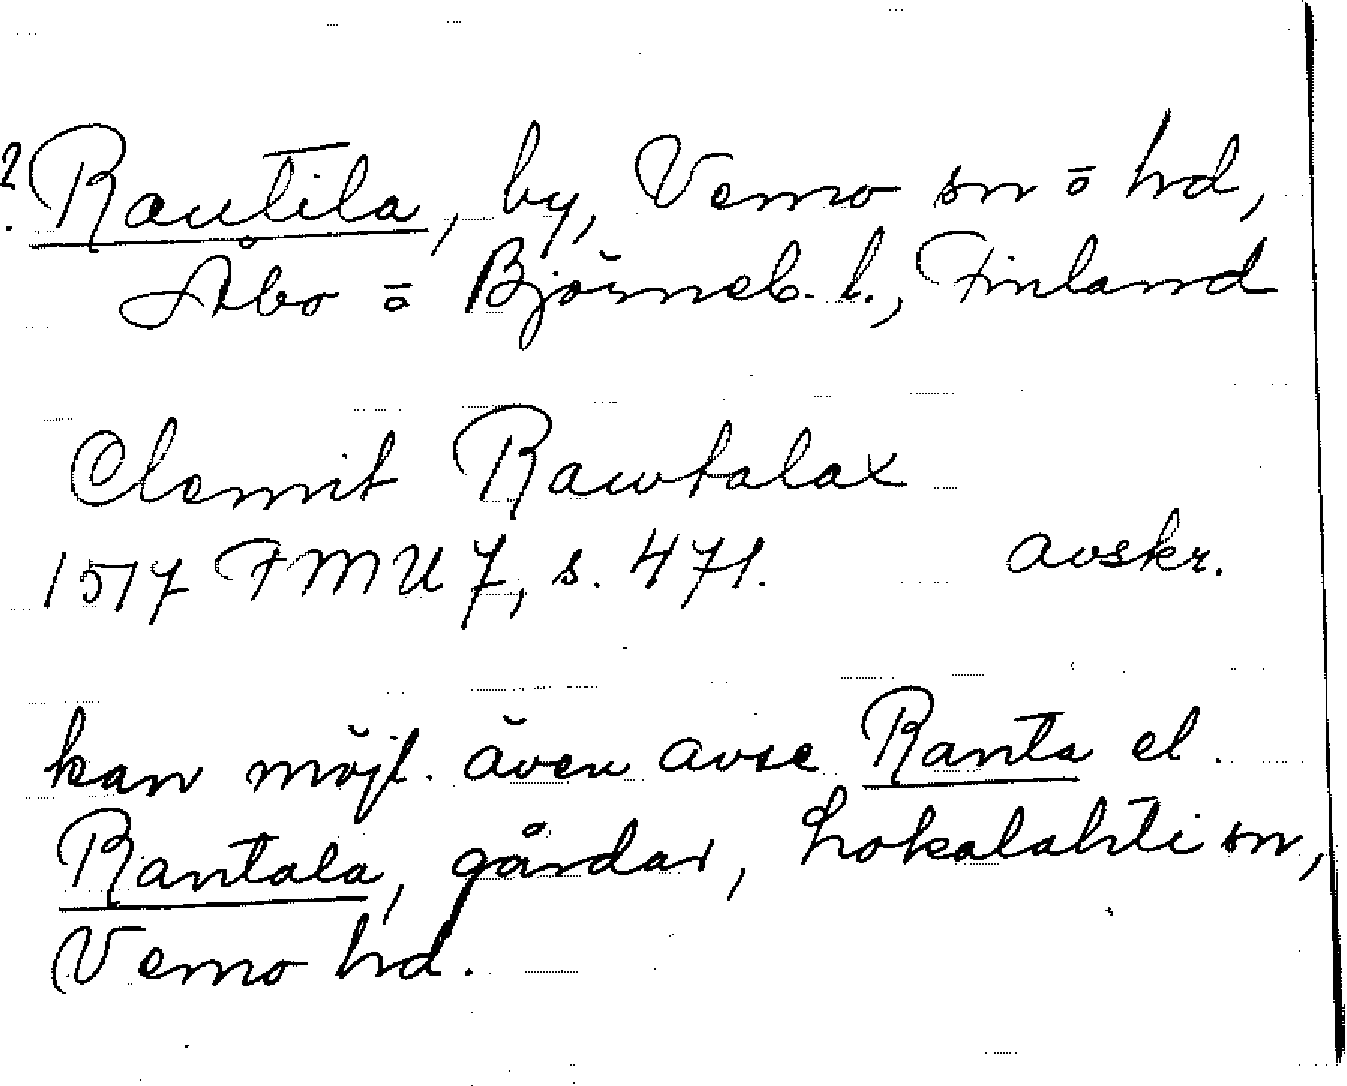 ? Rautila, by, Vemo sn o hd,
Åbo o Björneb. l., Finland
Clemit Rawtalax
1517 FMU 7, s. 471. avskr.
kan möjl. även avse Ranta el.
Rantala, gårdar, Lokalahti sn,
Vemo hd.